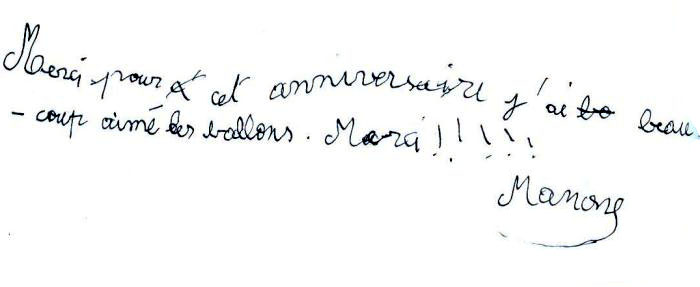 Merci pour cet anniversaire j'ai beau
-coup aimé les ballons. Merci!!!!!
Manon